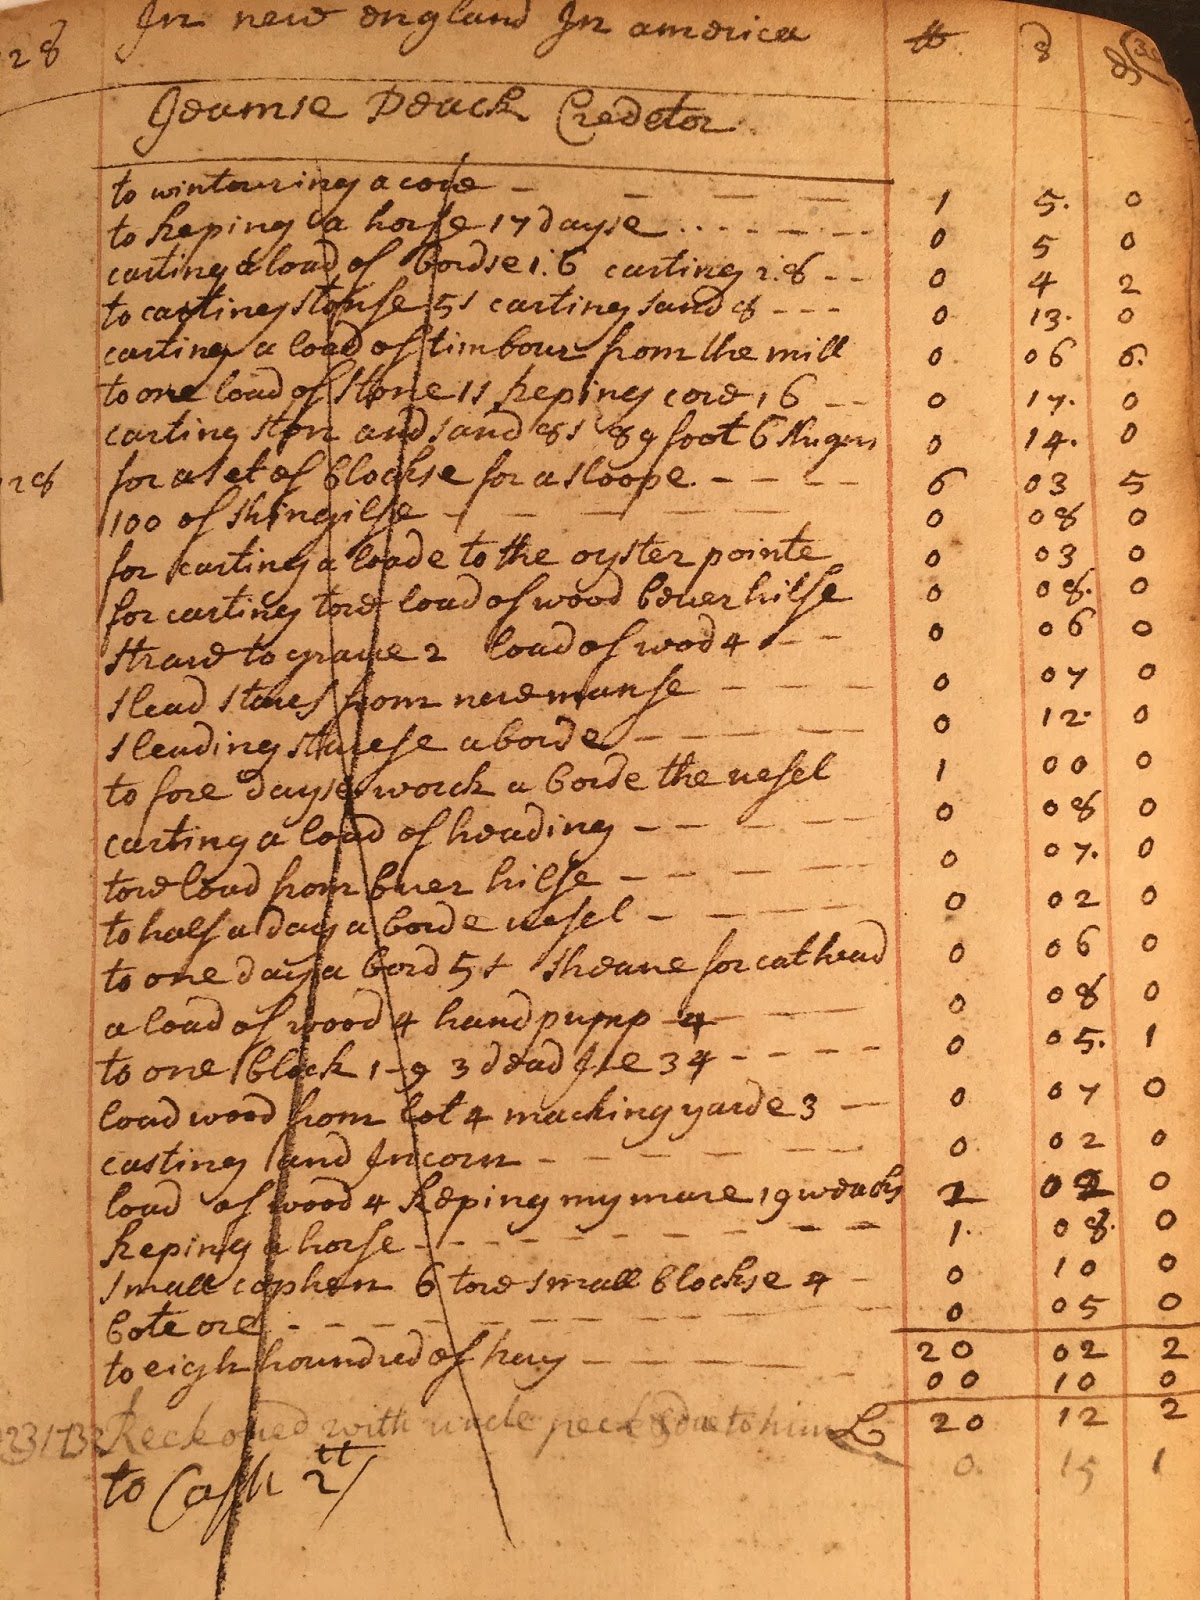 In new england In america # s d
28
Jeamse Peack Credetor
to wintouring a cowe 1 5. 0
to keping a horse 17 dayse 0 5 0
carting a load of bordse 1:6 carting 2:8 0 4 2
to carting stonse 5s carting sand 8 0 13. 0
carting a load of timbour from the mill 0 06 6.
to one load of stone 1s keping cowe 16 0 17. 0
carting ston and sand 8s 89 foot 6 0 14. 0
28 for a set of blockse for a sloope 6 03 5
100 of shingilse 0 08 0
for carting a loade to the oyster pointe 0 03 0
for carting towe load of wood bever hilse 0 08. 0
strawe to grave 2 load of wood 4 0 06 0
slead staves from newmanse 0 07 0
sleading stavese a borde 0 12. 0
to fore dayse worck a borde the vesel 1 00 0
carting a load of heading 0 08 0
towe load from bever hilse 0 07. 0
to half a day a borde vesel 0 02 0
to one day a bord 5s sheave for cathead 0 06 0
a load of wood 4 hand pump 4 0 08 0
to one block 1-9 3 dead Jse 3 4 0 05. 1
load wood from lot 4 macking yarde 3 0 07 0
casting and In corn 0 02 0
load of wood 4 keping my mare 19 weacks 02 0
keping a horse 1. 08. 0
small 6 towe small blockse 4 0 10 0
bote ore 0 05 0
20 02 2
to eigh houndred of hay 00 10 0
23 1732 Reckoned with uncle peck & due to him L 20 12 2
0. 15 1
to Cash 2tt